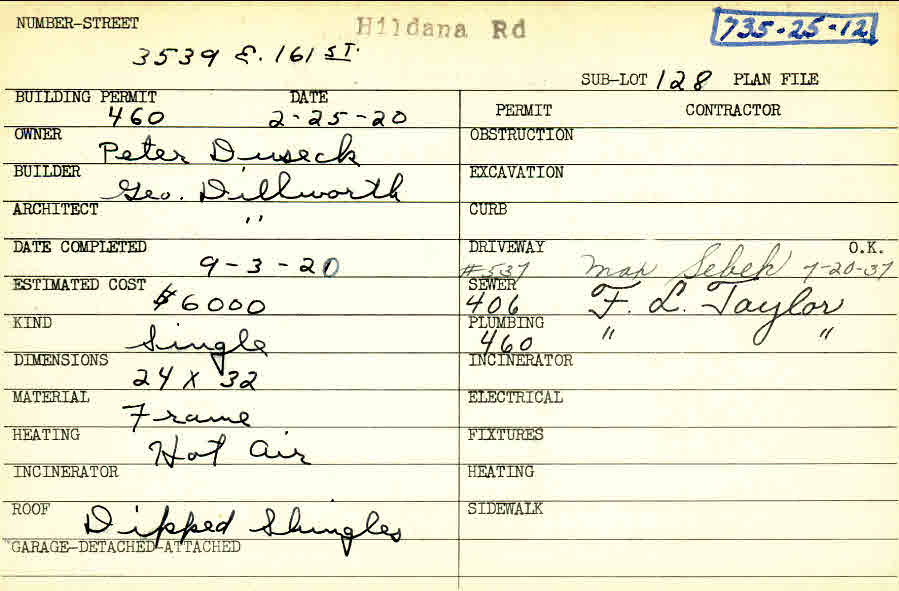 NUMBER-STREET Hildana Rd 735-25-12
3539 E. 161 ST.
SUB-LOT 128 PLAN FILE
BUILDING PERMIT DATE
460 2-25-20
PERMIT CONTRACTOR
OWNER
Peter Duseck
OBSTRUCTION
BUILDER
Geo. Dillworth
EXCAVATION
ARCHITECT
"
CURB
DATE COMPLETED
9-3-20
DRIVEWAY O.K.
#537 Max Sebek 7-20-37
ESTIMATED COST
$6000
SEWER
406 F. L. Taylor
KIND
Single
PLUMBING
460 " "
DIMENSIONS
24 X 32
INCINERATOR
MATERIAL
Frame
ELECTRICAL
HEATING
Hot Air
FIXTURES
INCINERATOR
HEATING
ROOF
Dipped Shingles
SIDEWALK
GARAGE-DETACHED-ATTACHED